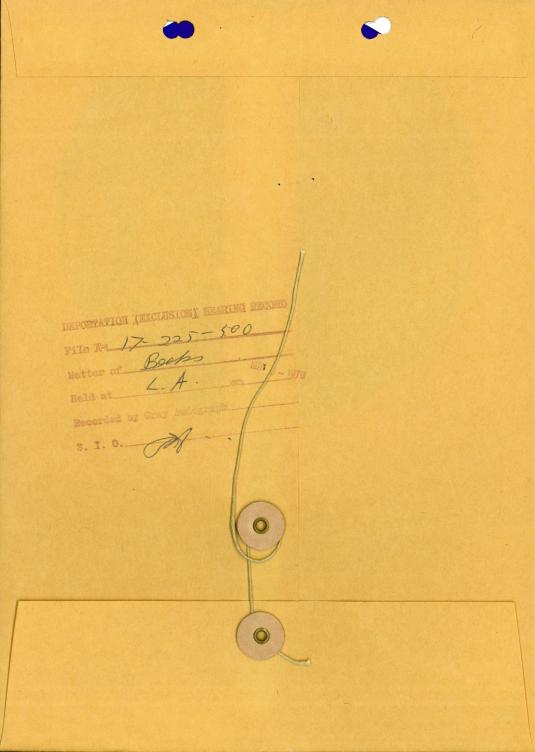 DEPORTATION (EXCLUSION) HEARING RECORD
File A- 17-225-500
Matter of
Held at L.A. on - 1970
Recorded by Gray Audograph
S. I. O.